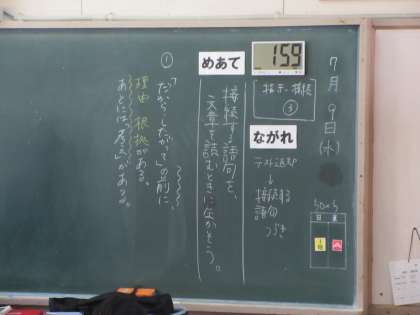 7月9日(水)
159
指示・接続
③
ながれ
テスト返却
↓
接続する
語句
つづき
めあて
接続する語句を、
文章を読むときに生かそう。
①
「だから・したがって」の前に、
理由 根拠がある。
あとには「考え」がある。